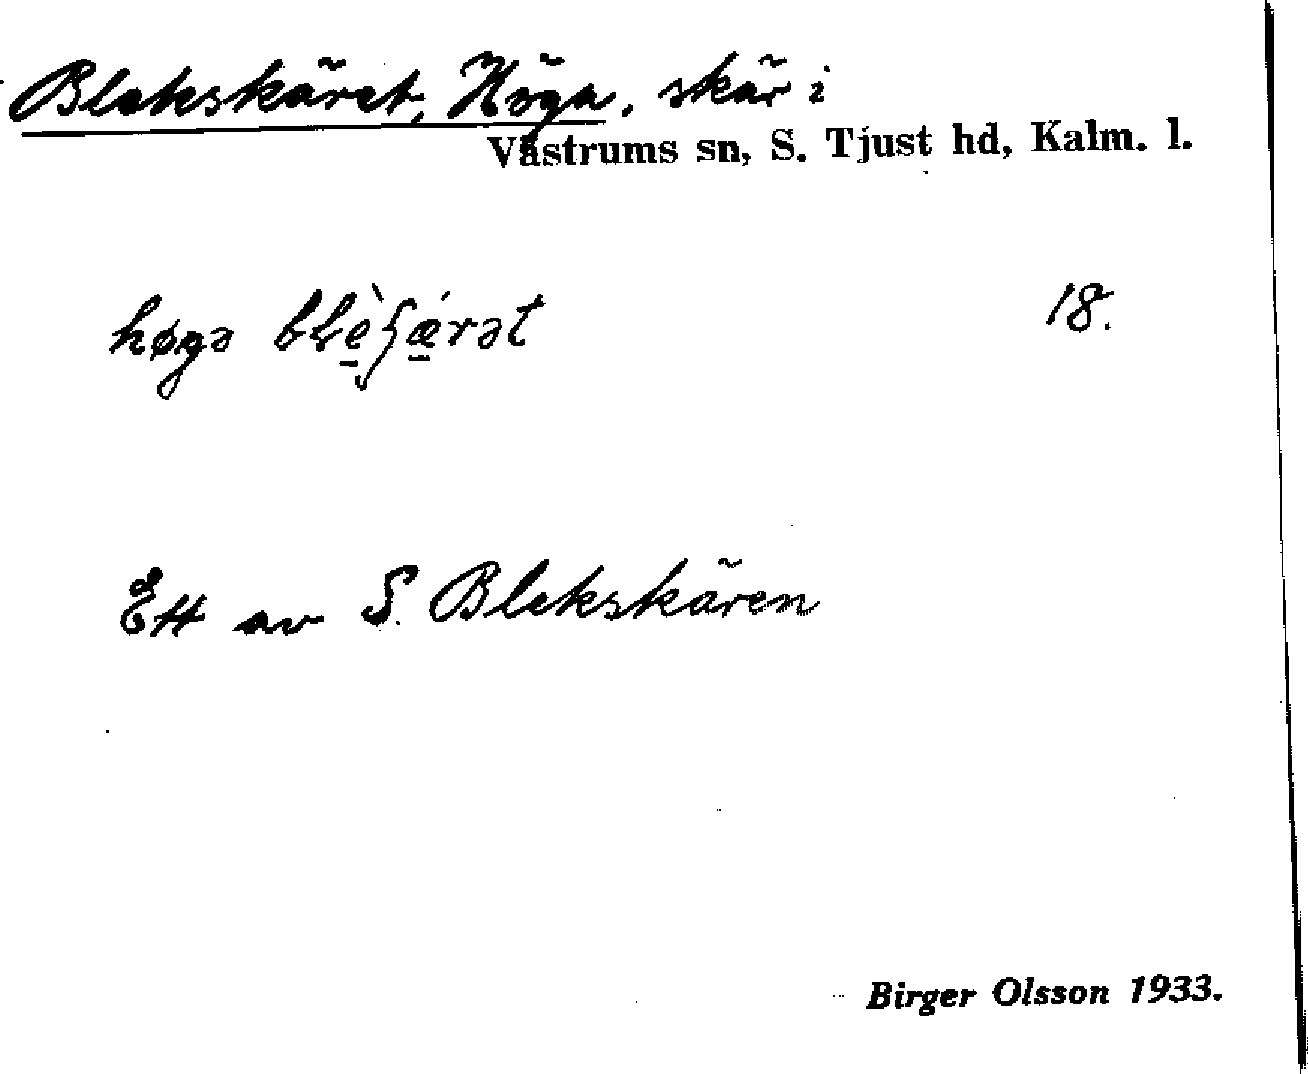 Blekskäret, Höga, skär i
Västrums sn, S. Tjust hd, Kalm. l.
høgə 18.
Ett av S. Blekskären
Birger Olsson 1933.